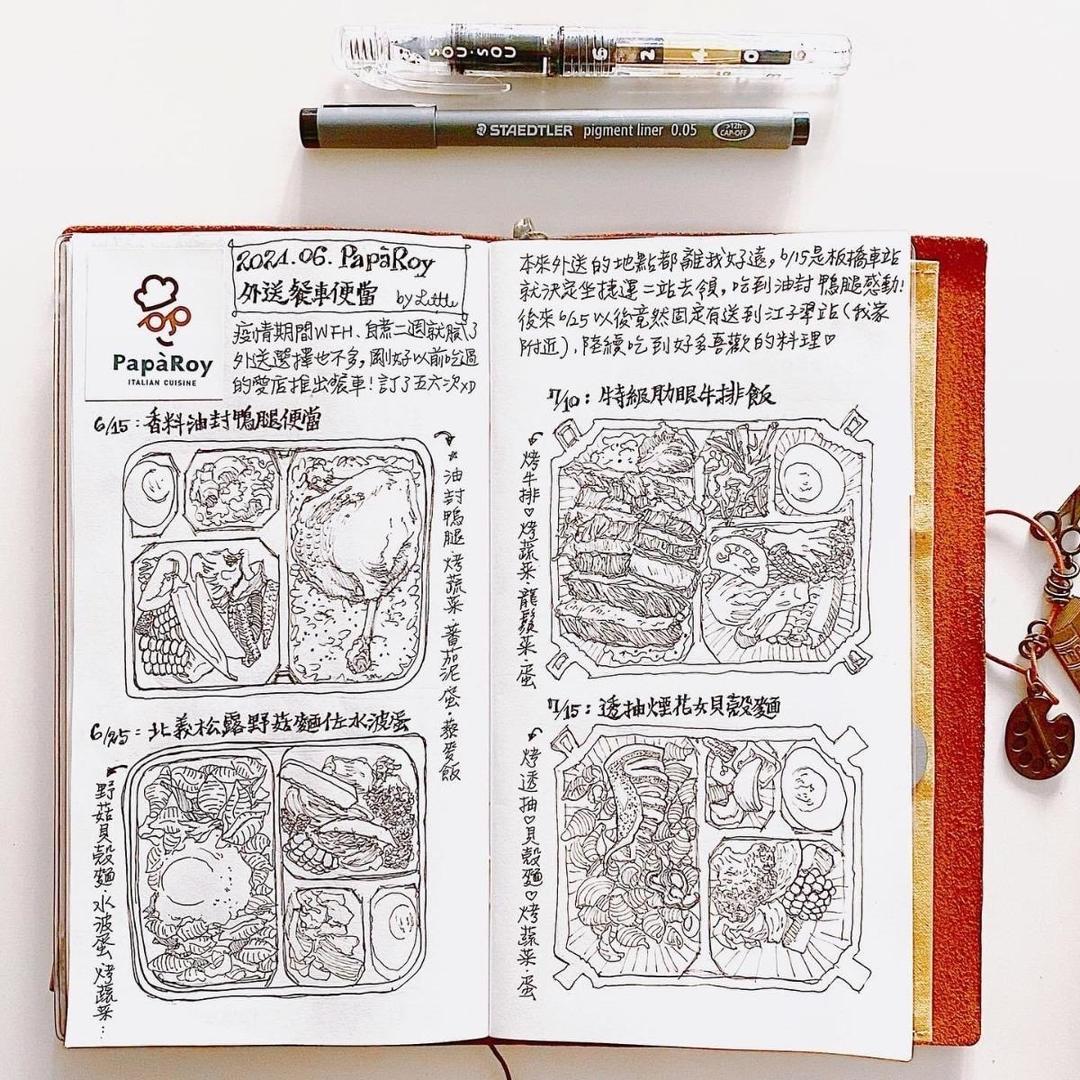 SOU·SOU
6 2 4 0
STAEDTLER pigment liner 0.05 >12h CAP-OFF
PapàRoy
ITALIAN CUISINE
2021.06. PapàRoy
外送餐車便當 by Little
疫情期間WFH、自煮二週就膩了
外送選擇也不多，剛好以前吃過
的愛店推出餐車！訂了五六次xD
6/15：香料油封鴨腿便當
油封鴨腿 烤蔬菜 蕃茄泥 蛋·藜麥飯
6/25：北義松露野菇麵佐水波蛋
野菇貝殼麵 水波蛋 烤蔬菜…
本來外送的地點都離我好遠，6/15是板橋車站
就決定坐捷運二站去領，吃到油封鴨腿感動！
後來6/25以後竟然固定有送到江子翠站（我家
附近），陸續吃到好多喜歡的料理♡
7/10：特級肋眼牛排飯
烤牛排♡烤蔬菜·龍鬚菜·蛋
7/15：透抽煙花女貝殼麵
烤透抽♡貝殼麵♡烤蔬菜·蛋